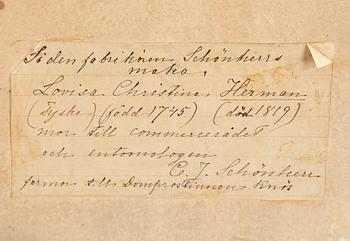 Sidenfabrikören Schönherrs
maka,
Lovisa Christina Herman
(Tyska) (född 1745) (död 1819)
mor till commercerådet
och entomologen
C. J. Schönherr
farmor till Domprostinnan Knös